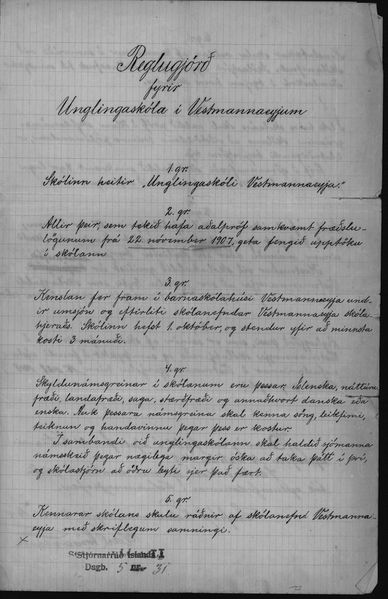 Reglugjörð
fyrir
Unglingaskóla í Vestmannaeyjum
1. gr.
Skólinn heitir "Unglingaskóli Vestmannaeyja."
2. gr.
Allir þeir, sem tekið hafa aðalpróf samkvæmt fræðslu-
lögunum frá 22. nóvember 1907, geta fengið upptöku
í skólann
3. gr.
Kenslan fer fram í barnaskólahúsi Vestmannaeyja und-
ir umsjón og eftirliti skólanefndar Vestmannaeyja skóla-
hjeraðs. Skólinn hefst 1. október, og stendur yfir að minnsta
kosti 3 mánuði.
4. gr.
Skyldunámsgreinar í skólanum eru þessar: Íslenska, náttúru-
fræði, landafræði, saga, stærðfræði og annaðhvort danska eða
enska. Auk þessara námsgreina skal kenna söng, leikfimi,
teiknun og handavinnu þegar þess er kostur.
Í sambandi við unglingaskólann skal haldið sjómanna
námsskeið þegar nægilega margir óska að taka þátt í því,
og skólastjórn að öðru leyti sjer það fært.
5. gr.
Kennarar skólans skulu ráðnir af skólanefnd Vestmanna-
eyja með skriflegum samningi.
Stjórnarráð Íslands II
Dagb. 5 31